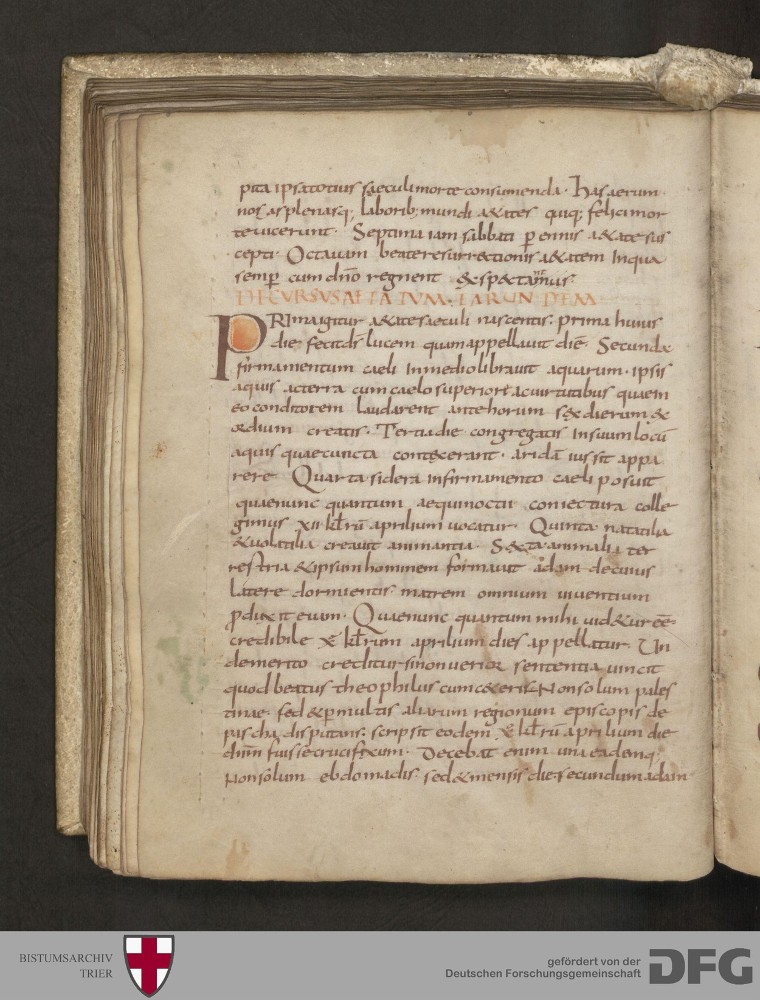 pita ipsa totius saeculi morte consumenda · has aerum
nosas plenasq; laborib; mundi aetates quiq; felici mor
te vicerunt · Septima iam sabbati p ennis aetate sus
cepti · Octavam beatę resurrectionis aetatem In qua
semp cum dno regnent exspectamus
DECURSUS AETATUM EARUNDEM
PRIma igitur aetate saeculi nascentis · prima huius
die fecit ds lucem quam appellavit diē · Secunda
firmamentum caeli In medio libravit aquarum · ipsis
aquis ac terra cum caelo superiore ac virtutibus quae In
eo conditorem laudarent ante horum sex dierum ex
ordium creatis · Tertia die congregatis In suum locū
aquis quae cuncta contexerant · aridā iussit appa
rere Quarta sidera In firmamento caeli posuit
quae nunc quantum aequinoctii coniectura colle
gimus xii kl̄rū aprilium vocatur · Quinta natatilia
& volatilia creavit animantia · Sexta animalia ter
restria & ipsum hominem formavit adam de cuius
latere dormientis matrem omnium viventium
pduxit evam · Quae nunc quantum mihi videtur eē
credibile x kl̄rum aprilium dies appellatur · Un
de merito creditur si non verior sententia vincit
quod beatus theophilus cum ceteris Non solum pales
tinae · sed & pmultis aliarum regionum episcopis de
pascha disputans · scripsit eodem x kl̄rū aprilium die
dnm fuisse crucifixum · Decebat enim una eademq;
Non solum ebdomadis · sed & mensis die secundum adam
BISTUMSARCHIV
TRIER
gefördert von der
Deutschen Forschungsgemeinschaft
DFG